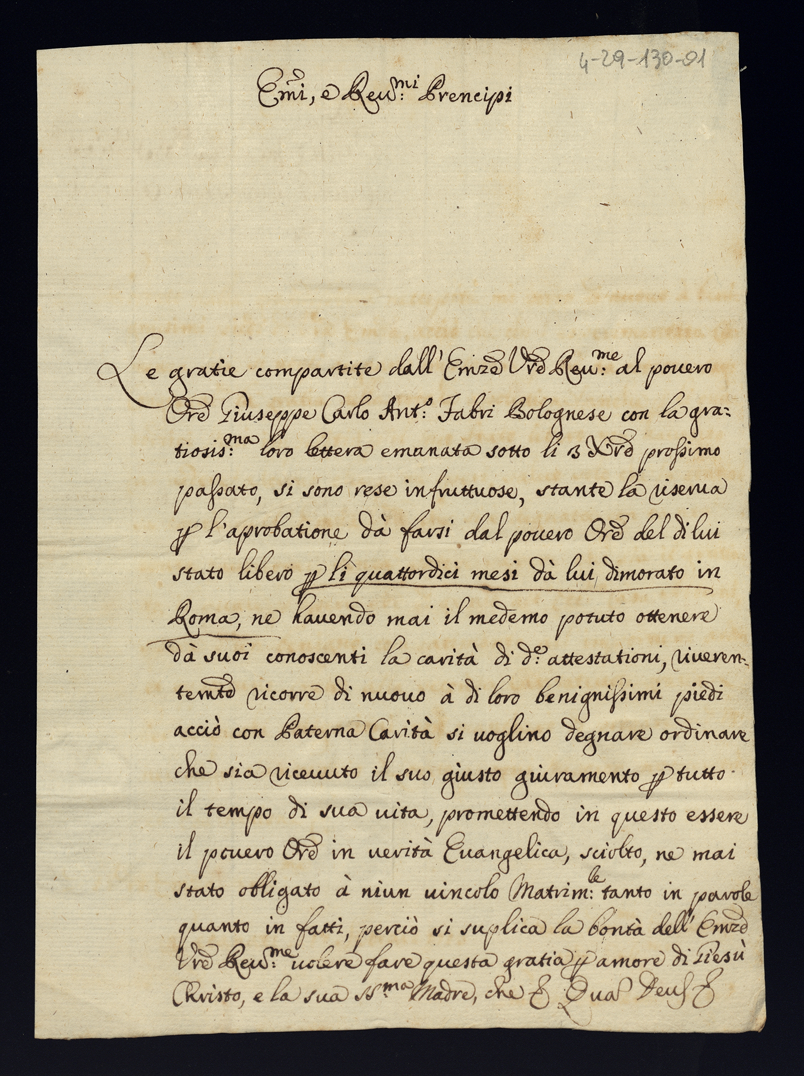 4-29-130-01
Em̃i, e Reu:mi Prencipi
Le gratie compartite dall' Emze Vre Reu:me al pouero
Ore Giuseppe Carlo Ant:o Fabri Bolognese con la gra-
tiosis:ma loro lettera emanata sotto li 3 Xbre prossimo
passato, si sono rese infruttuose, stante la riserua
p l'aprobatione dà farsi dal pouero Ore del di lui
stato libero p li quattordici mesi dà lui dimorato in
Roma, ne hauendo mai il medemo potuto ottenere
dà suoi conoscenti la carità di d:e attestationi, riueren-
temte ricorre di nuouo à di loro benignissimi piedi
acciò con Paterna Carità si uoglino degnare ordinare
che sia riceuuto il suo giusto giuramento p tutto
il tempo di sua uita, promettendo in questo essere
il pouero Ore in uerità Euangelica, sciolto, ne mai
stato obligato à niun uincolo Matrim:le tanto in parole
quanto in fatti, perciò si suplica la bontà dell' Emze
Vre Reu:me uolere fare questa gratia p amore di Giesù
Christo, e la sua SS:ma Madre, che &. Quas Deus &